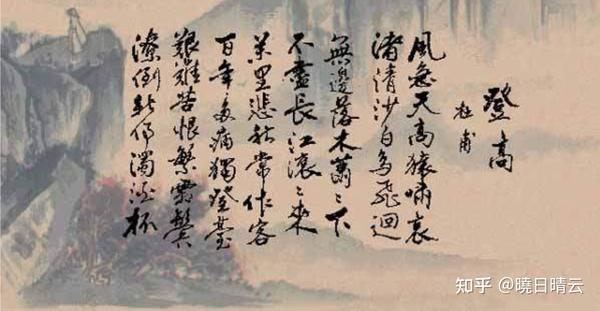 登高
杜甫
風急天高猿嘯哀
渚清沙白鳥飛迴
無邊落木蕭〻下
不盡長江滾〻來
萬里悲秋常作客
百年多病獨登臺
艱難苦恨繁霜鬢
潦倒新停濁酒杯
知乎 @曉日晴云